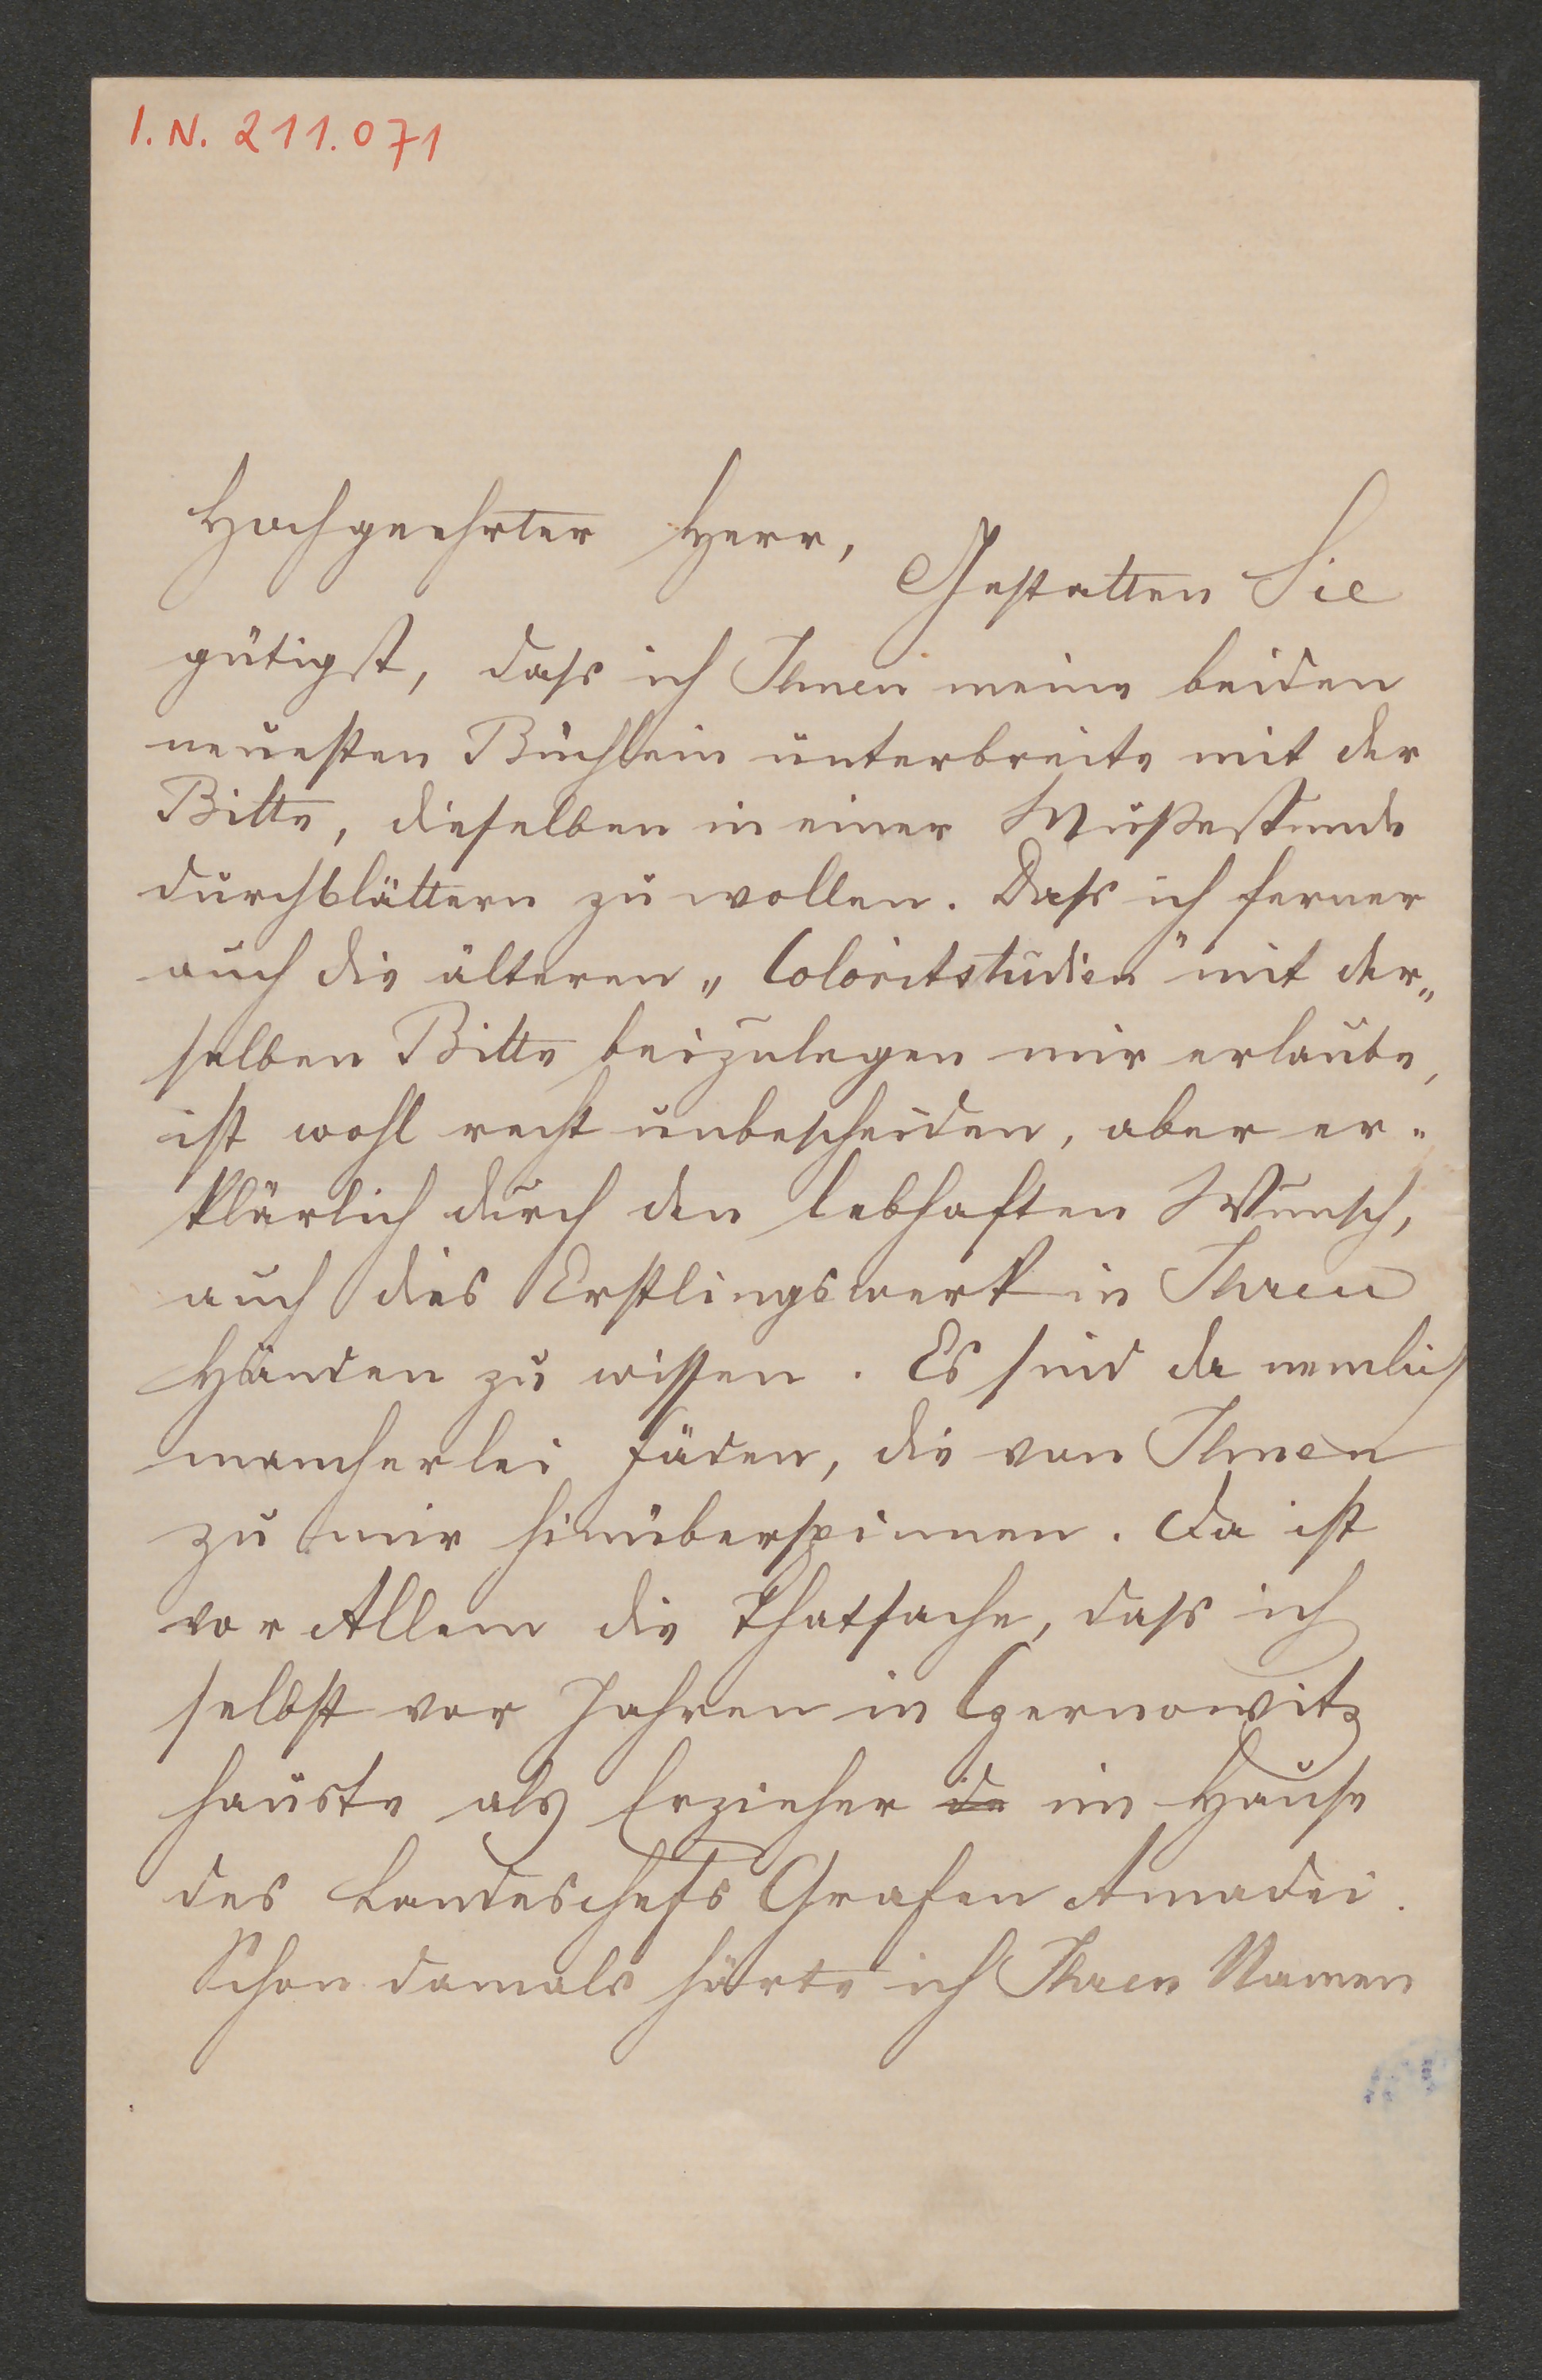 I.N. 211.071
Hochgeehrter Herr,
Gestatten Sie
gütigst, dass ich Ihnen meine beiden
neuesten Büchlein unterbreite mit der
Bitte, dieselben in einer Mußestunde
durchblättern zu wollen. Dass ich ferner
auch die älteren „Coloritstudien“ mit der„
selben Bitte beizulegen mir erlaube,
ist wohl recht unbescheiden, aber er„
klärlich durch den lebhaften Wunsch,
auch dies Erstlingswerk in Ihren
Händen zu wissen. Es sind da nemlich
mancherlei Fäden, die von Ihnen
zu mir hinüberspinnen. Da ist
vor Allem die Thatsache, dass ich
selbst vor Jahren in Czernowitz
hauste als Erzieher im Hause
des Landeschefs Grafen Amadei.
Schon damals hörte ich Ihren Namen